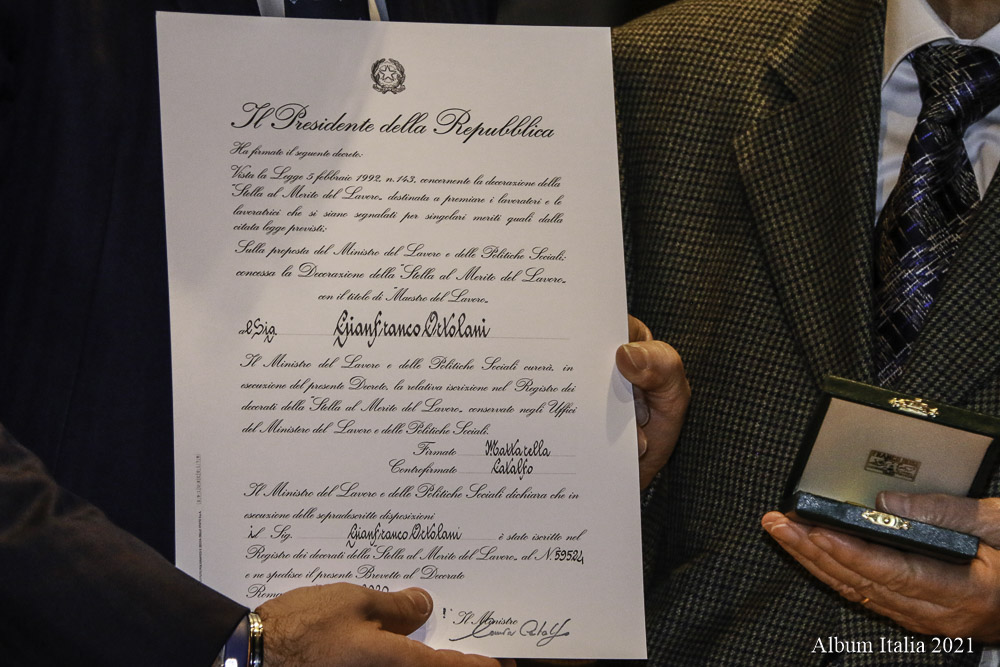 Il Presidente della Repubblica
Ha firmato il seguente decreto:
Vista la Legge 5 febbraio 1992, n. 143, concernente la decorazione della
"Stella al Merito del Lavoro„ destinata a premiare i lavoratori e le
lavoratrici che si siano segnalati per singolari meriti quali dalla
citata legge previsti;
Sulla proposta del Ministro del Lavoro e delle Politiche Sociali;
concessa la Decorazione della "Stella al Merito del Lavoro„
con il titolo di "Maestro del Lavoro„
al Sig. Gianfranco Ortolani
Il Ministro del Lavoro e delle Politiche Sociali curerà, in
esecuzione del presente Decreto, la relativa iscrizione nel Registro dei
decorati della "Stella al Merito del Lavoro„ conservato negli Uffici
del Ministero del Lavoro e delle Politiche Sociali.
Firmato Mattarella
Controfirmato Catalfo
Il Ministro del Lavoro e delle Politiche Sociali dichiara che in
esecuzione delle sopradescritte disposizioni
il Sig. Gianfranco Ortolani è stato iscritto nel
Registro dei decorati della Stella al Merito del Lavoro„ al N. 59524
e ne spedisce il presente Brevetto al Decorato
Roma 2020
Il Ministro
Album Italia 2021